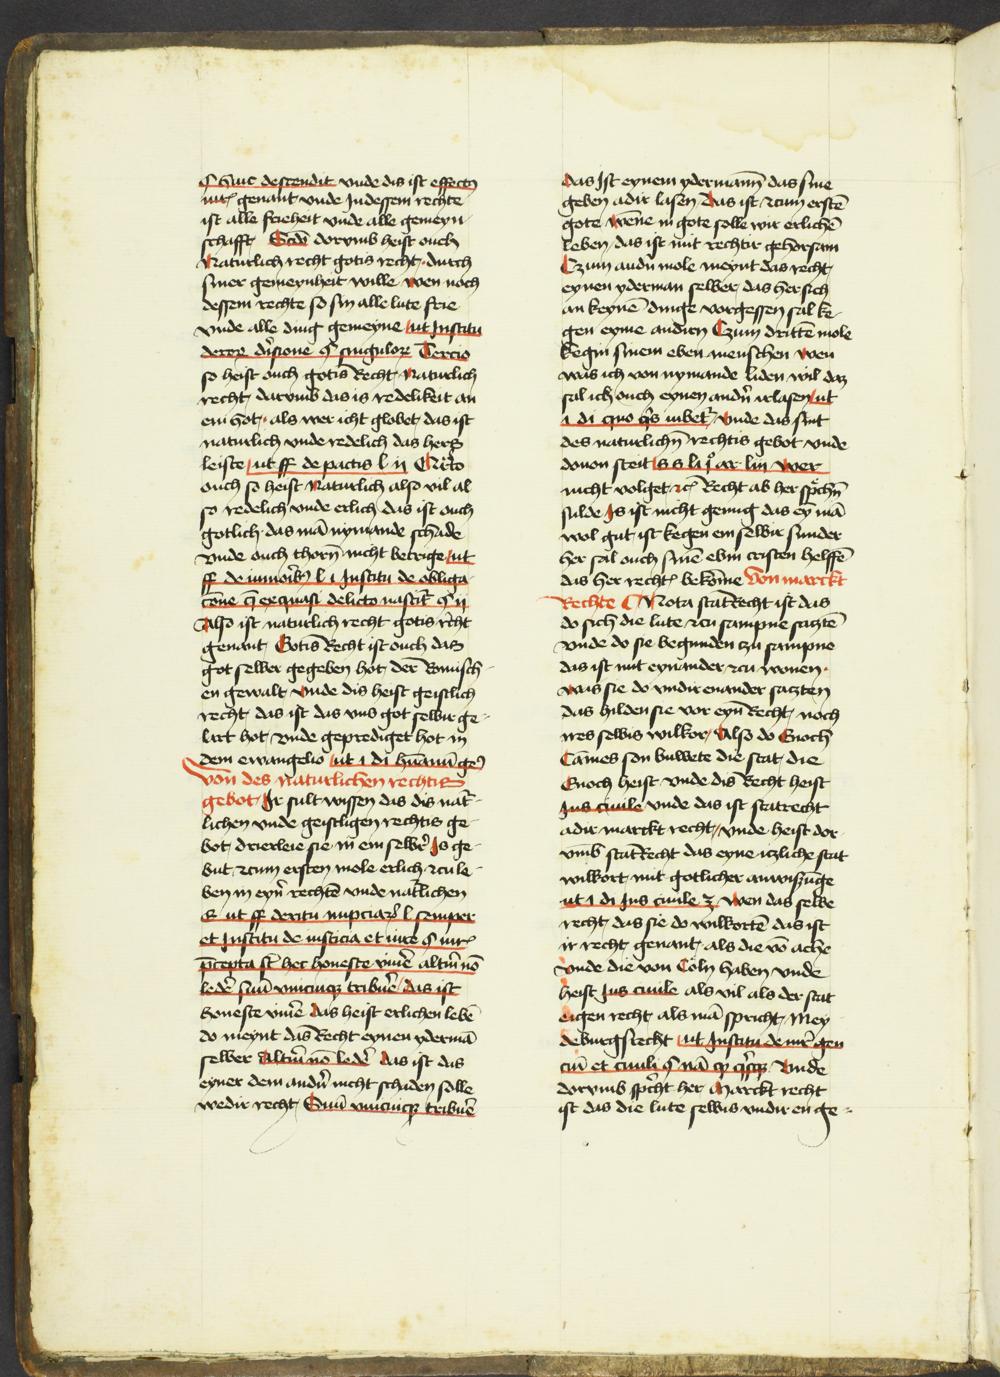 § huic descendit vnde dis ist effectꝰ
iurꝭ genant vnde Jn dessem rechte
ist alle frieheit vnde alle gemeyn
schafft Scdo dorvmb heist ouch
Naturlich recht gotis recht durch
siner gemeynheit wille wen noch
dessem rechte so sin alle lute frie
vnde alle ding gemeyne ut Institu
de rerꝝ diuisione § singulorꝝ Tercio
so heist ouch gotis Recht Naturlich
recht darvmb das is redelikeit an
em hot als wer icht globet das ist
naturlich vnde redelich das hers
leiste ut ff de pactis l ij Qrto
ouch so heist Naturlich also vil al
so redelich vnde erlich das ist ouch
gotlich das mā nymande schade
vnde ouch thorū nicht betrige ut
ff de minoribꝰ l i Institu de obliga
cōne q̄ ex quasi delicto nascit̄ § ij
Also ist naturlich recht gotis recht
genant Gotis Recht ist ouch das
got selber gegeben hot der Romisch
en gewalt vnde dis heist geistlich
recht das ist das vns got selbir ge
lart hot vnde geprediget hot in
dem ewangelio ut i di hūanū geꝰ
Von des naturlichen rechtis
gebot Jr sult wissen das dis nat̄
lichen vnde geistligen rechtis ge
bot drierleie sie in em selbr̄ Js ge
but czum ersten mole erlich czu le
ben in eyn̄ rechtē vnde nat̄lichen
ut ff de ritu nupciarꝝ l semper
et Institu de iusticia et iure § iurꝭ
p̄cepta sūt hec honeste viuē altm̄ nō
ledē suū vnicuiqꝫ tribuē das ist
honeste viuē das heist erlichen lebē
do meynt das Recht eynen ydermā
selber Altm̄ nō ledē das ist das
eyner dem andn̄ nicht schaden solle
wedir recht Suū vnicuiqꝫ tribuē
das Jst eynem ydermann das sine
geben adir lasen Das ist czum erstē
gote wēne in gote solle wir erlichē
leben das ist mit rechtir gehorsam
Czum andn̄ mole meynt das recht
eynen yderman selber das her sich
an keynē dinge vorgessen sal ke
gen eyme andirn Czum drittē mole
kegin sinem eben menschen wen
was ich von nymande liden wil daz
sal ich ouch eynen andn̄ irlasen ut
i di quo q̄s iubet̄ vnde das sint
des naturlichn̄ rechtis gebot vnde
douon steit wer
nicht volget Recht ab her sprichn̄
sulde Js ist nicht genug das ey mā
wol gut ist kegen em selbir sunder
her sal ouch sinē ebin cristen helffē
das her rechtꝭ bekōme Von marckt
Rechte Nota stat Recht ist das
do sich die lute czu sampne saczten
vnde do sie begunden czu sampne
das ist mit eynander czu wonen
was sie do vndir enander saczten
das hilden sie vor eyn Recht noch
ires selbis wilkor Also do Enoch
Caines son buwete die stat die
Enoch heist vnde dis Recht heist
Jus ciuile vnde das ist statrecht
adir marckt recht vnde heist dor
vmb stat Recht das eyne iczliche stat
wilkort mit gotlicher anwiszunge
ut i di Jus ciuile z wen das selbe
recht das sie do wilkortē das ist
ir recht genant als die vō ache
vnde die von Coln haben vnde
heist Jus ciuile als vil als der stat
eigen recht als mā spricht Mey
deburgs recht ut Institu de iur̄ gen
ciū et ciuili § nā Vnde
dorvmb sp̄cht her Marckt recht
ist das die lute selbis vndir en ge